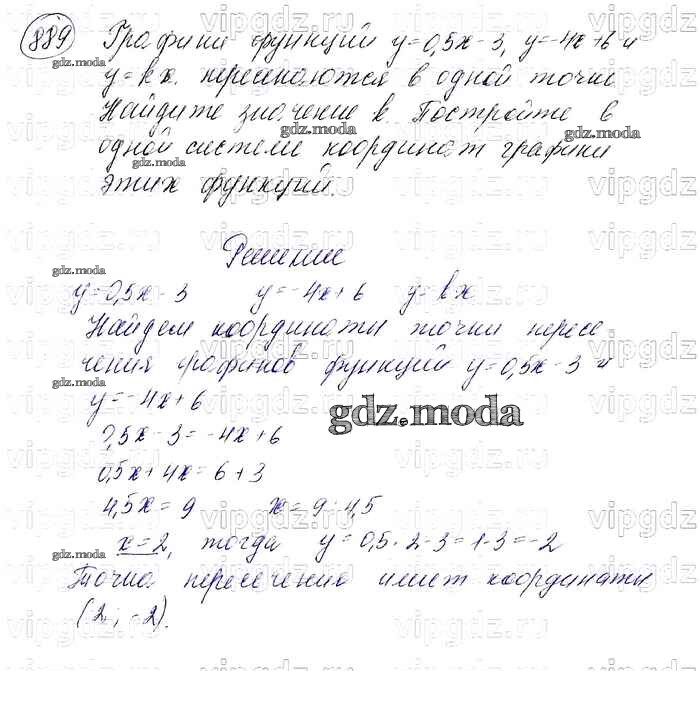 889 Графики функций y=0,5x-3, y=-4x+6 и
y=kx. пересекаются в одной точке
Найдите значение k. Постройте в
одной системе координат графики
этих функций.
Решение
y=0,5x-3 y=-4x+6 y=kx
Найдем координаты точки пересе
чения графиков функций y=0,5x-3 и
y=-4x+6
0,5x-3=-4x+6
0,5x+4x=6+3
4,5x=9 x=9:4,5
x=2, тогда y=0,5·2-3=1-3=-2
Точка пересечения имеет координаты
(2; -2).
gdz.moda
vipgdz.ru